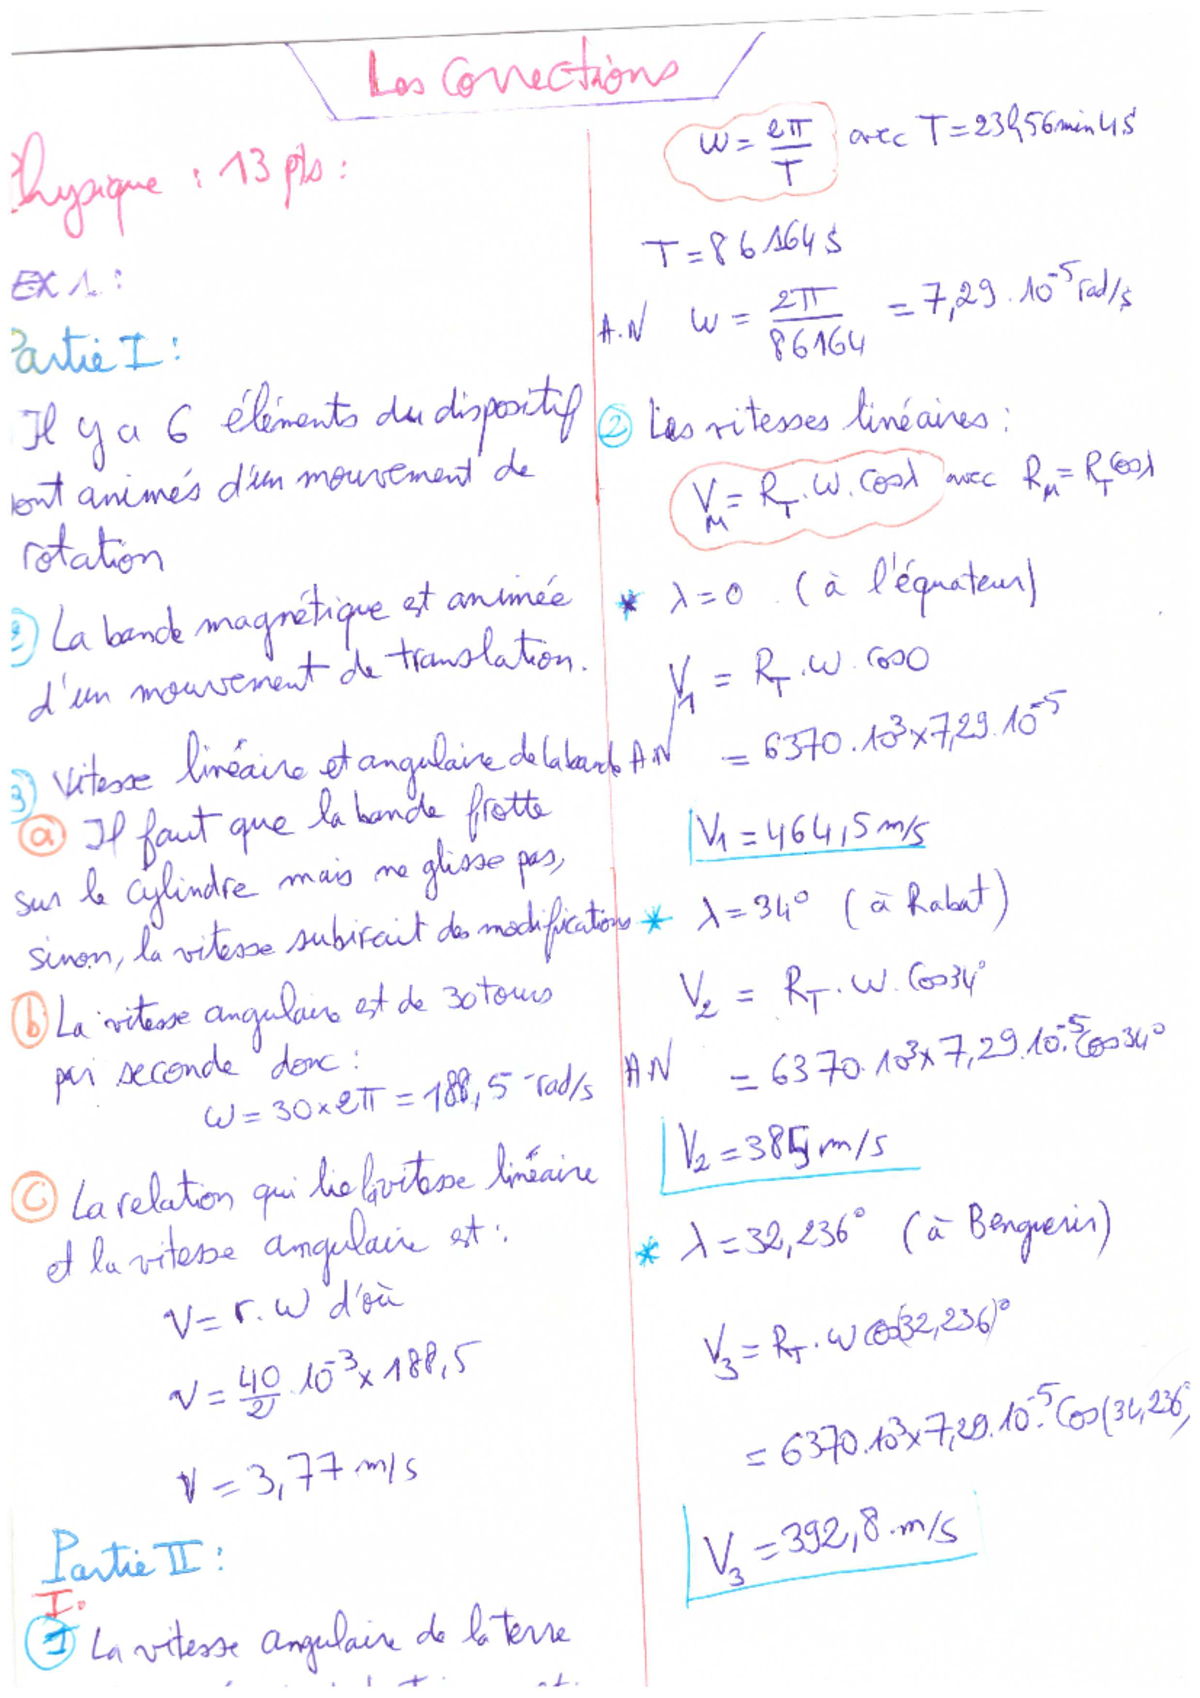 Les Corrections
Physique : 13 pts :
EX 1 :
Partie I :
Il y a 6 éléments du dispositif
sont animés d'un mouvement de
rotation
2 La bande magnétique est animée
d'un mouvement de translation.
3 Vitesse linéaire et angulaire de la bande
a Il faut que la bande frotte
sur le cylindre mais ne glisse pas,
sinon, la vitesse subirait des modifications
b La vitesse angulaire est de 30 tours
par seconde donc :
ω = 30 × 2π = 188,5 rad/s
C La relation qui lie la vitesse linéaire
et la vitesse angulaire est :
V = r. ω d'où
v = 40/2 . 10⁻³ × 188,5
V = 3,77 m/s
Partie II :
I.
1 La vitesse angulaire de la terre
ω = 2π/T avec T = 23h56min4s
T = 86164 s
A.N ω = 2π/86164 = 7,29 . 10⁻⁵ rad/s
2 Les vitesses linéaires :
V_M = R_T . ω . cosλ avec R_M = R_T cosλ
* λ = 0 . (à l'équateur)
V₁ = R_T . ω . cos0
AN = 6370 . 10³ × 7,29 . 10⁻⁵
V₁ = 464,5 m/s
* λ = 34° (à Rabat)
V₂ = R_T . ω . Cos34°
AN = 6370 . 10³ × 7,29 . 10⁻⁵. Cos34°
V₂ = 385 m/s
* λ = 32,236° (à Benguerir)
V₃ = R_T . ω cos(32,236)°
= 6370 . 10³ × 7,29 . 10⁻⁵. Cos(34,236°)
V₃ = 392,8 . m/s